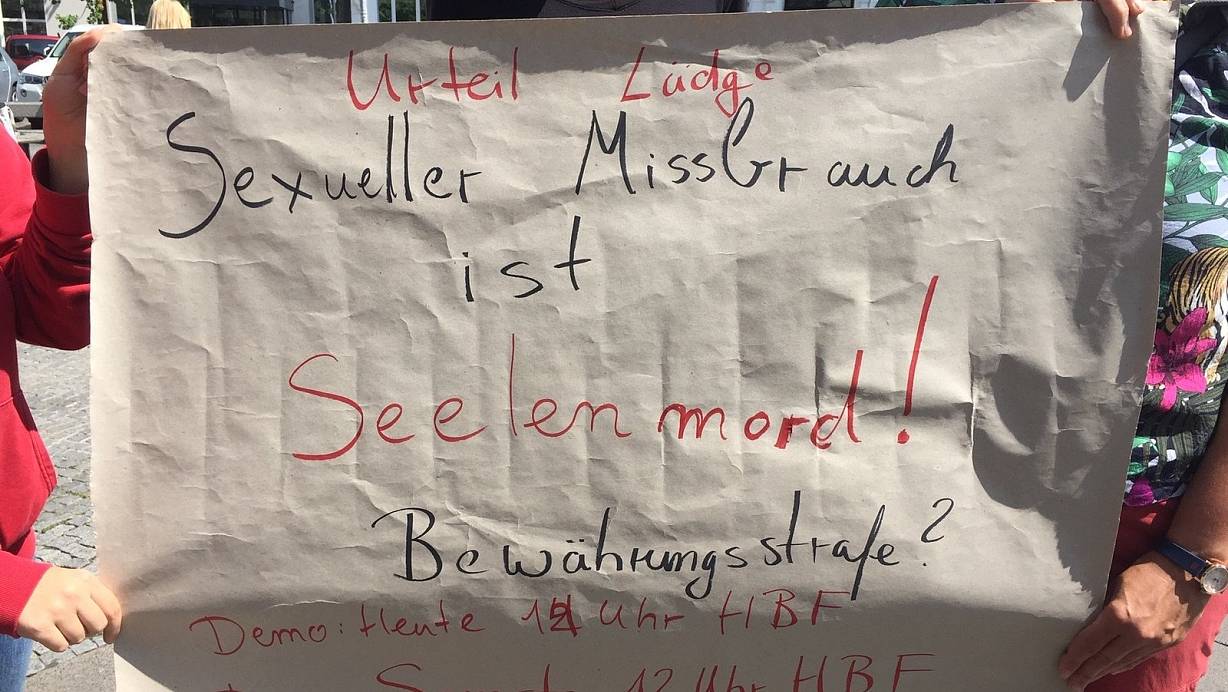 Urteil Lüdge
Sexueller Missbrauch
ist
Seelenmord!
Bewährungsstrafe?
Demo: Heute Uhr HBF
12 Uhr HBF